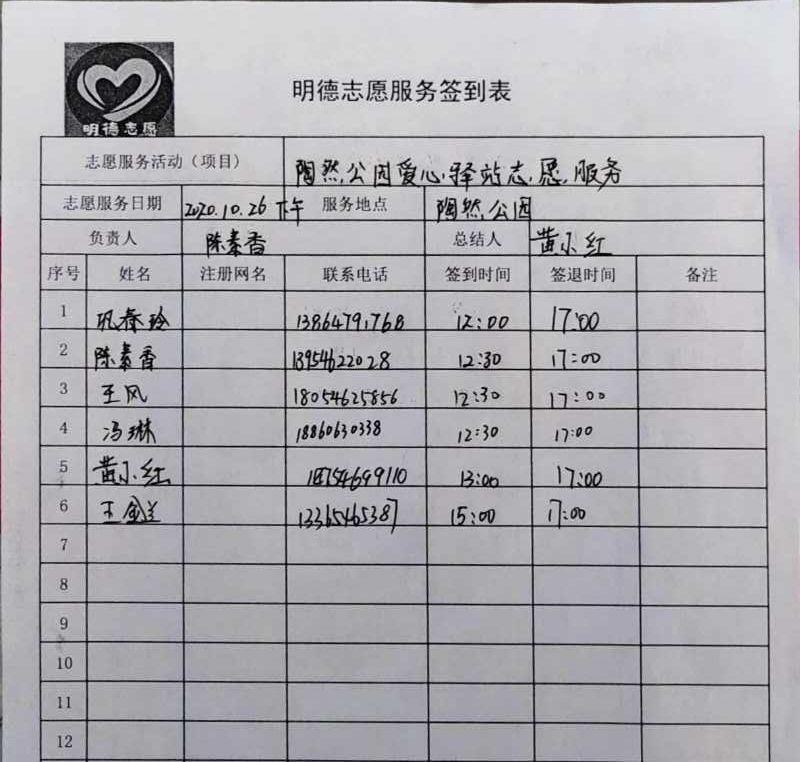 明德志愿
明德志愿服务签到表
志愿服务活动（项目） 陶然公园爱心驿站志愿服务
志愿服务日期 2020.10.26 下午 服务地点 陶然公园
负责人 陈素香 总结人 黄小红
序号 姓名 注册网名 联系电话 签到时间 签退时间 备注
1 巩春玲 13864791768 12:00 17:00
2 陈素香 13954622028 12:30 17:00
3 王风 18054625856 12:30 17:00
4 冯琳 18860630338 12:30 17:00
5 黄小红 13:00 17:00
6 王金兰 13365465387 15:00 17:00
7
8
9
10
11
12